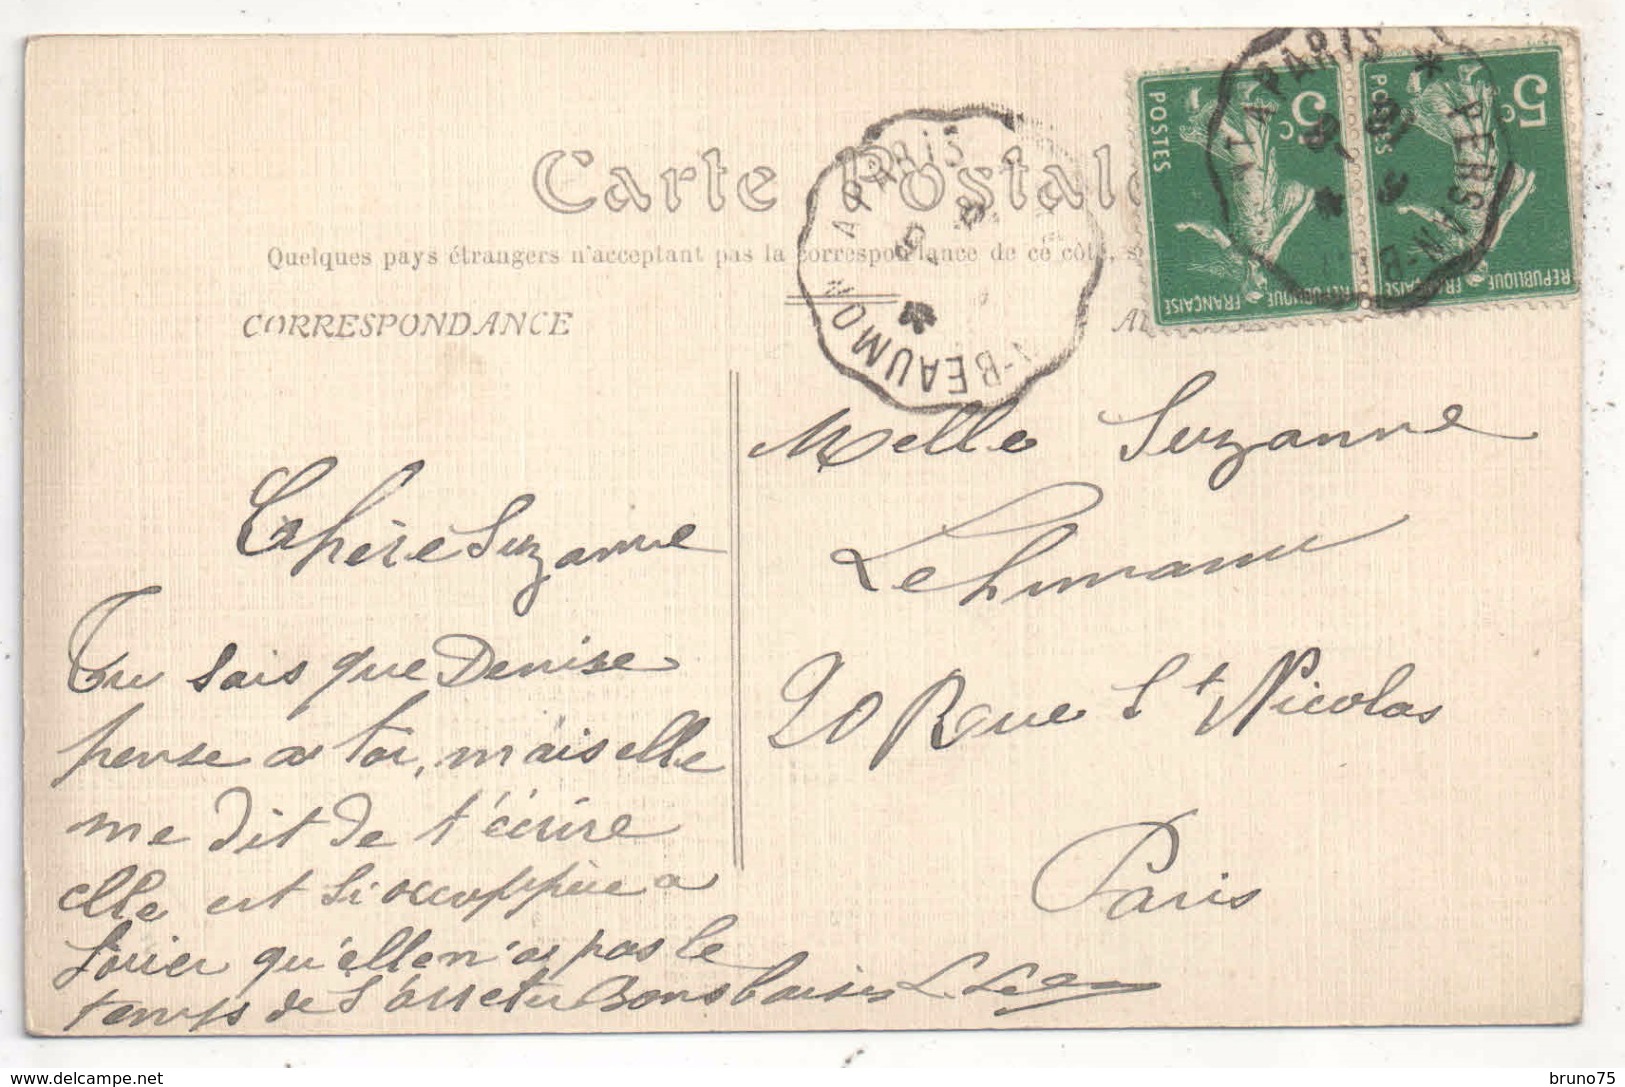 Carte Postale
Quelques pays étrangers n'acceptent pas la correspondance de ce côté, s
CORRESPONDANCE
PERSAN-BEAUMON A PARIS
PERSAN-B A PARIS
POSTES 5c REPUBLIQUE FRANÇAISE
POSTES 5c REPUBLIQUE FRANÇAISE
Chère Suzanne
Tu sais que Denise
pense a toi, mais elle
me dit de t'écrire
elle est si occuppèe a
jouer qu'elle n'a pas le
temps de s'arreter Bons baisers
Melle Suzanne
Lehmann
20 Rue St Nicolas
Paris
delcampe.net
bruno75